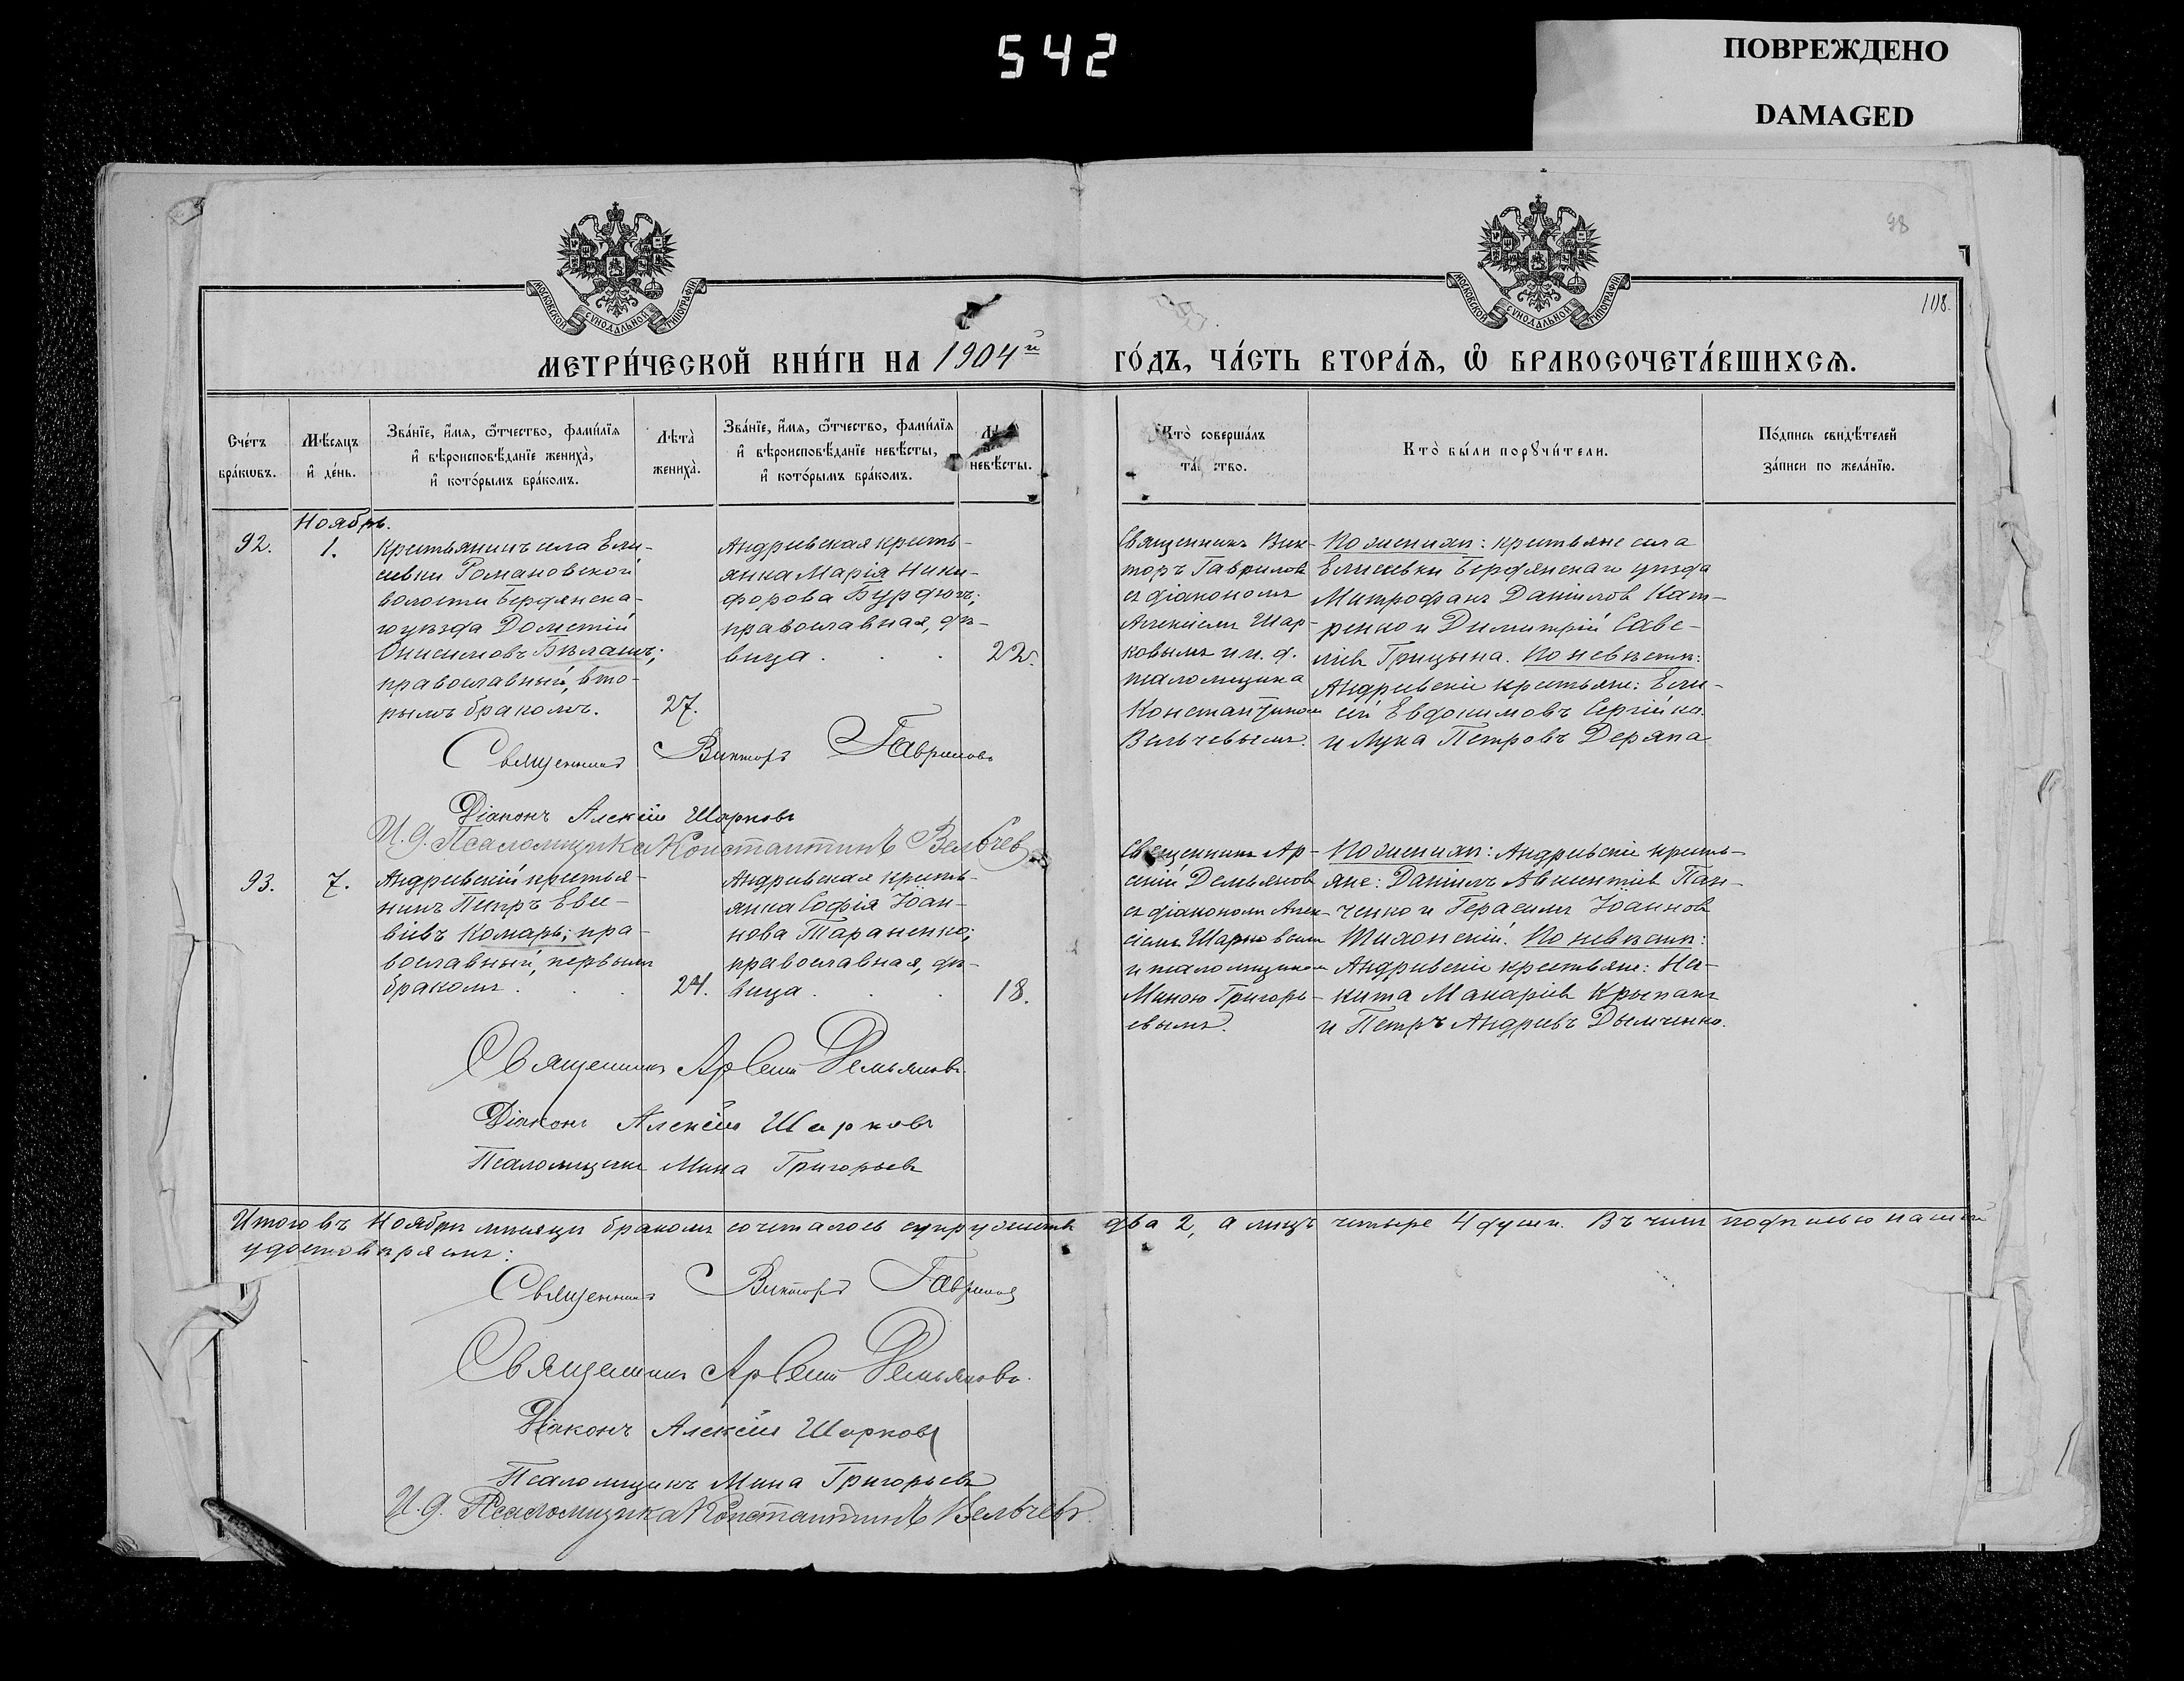 542
ПОВРЕЖДЕНО
DAMAGED
98
108.
МОСКОВСКОЙ СѴНОДАЛЬНОЙ ТИПОГРАФІИ
МОСКОВСКОЙ СѴНОДАЛЬНОЙ ТИПОГРАФІИ
МЕТРИ́ЧЕСКОЙ КНИ́ГИ НА 1904й ГО́ДЪ, ЧА́СТЬ ВТОРА́Ѧ, Ѽ БРАКОСОЧЕТА́ВШИХСѦ.
Сче́тъ
бра́кѡвъ.
Мѣ́сяцъ
и҆ де́нь.
Зва́нїе, и҆́мѧ, ѻ҆́тчество, фами́лїѧ
и҆ вѣроисповѣ́данїе жениха̀,
и҆ кото́рымъ бра́комъ.
Лѣта̀
жениха̀.
Зва́нїе, и҆́мѧ, ѻ҆́тчество, фами́лїѧ
и҆ вѣроисповѣ́данїе невѣ́сты,
и҆ кото́рымъ бра́комъ.
невѣ́сты.
Кто̀ соверша́лъ
та ство.
Кто̀ бы́ли порꙋчи́тели.
По́дпись свидѣ́телей
за́писи по жела́нїю.
Ноябрь.
92.
1.
Крестьянинъ села Ели-
сеевки Романовской
волости Бердянска-
го уѣзда Дометій
Онисимовъ Бѣлашъ;
православный, вто-
рымъ бракомъ.
27.
Андреевская кресть-
янка Марія Ники-
форова Бурдюгъ;
православная, дѣ-
вица . . .
22.
Священникъ Вик-
торъ Гавриловъ
съ діакономъ
Алексіемъ Шар-
ковымъ и и. д.
псаломщика
Константиномъ
Вельчевымъ.
По женихѣ: крестьяне села
Елисеевки Бердянскаго уѣзда
Митрофанъ Даніиловъ Кат-
ренко и Димитрій Саве-
ліевъ Грицына. По невѣстѣ:
Андреевскіе крестьяне: Ели-
сей Евдокимовъ Сергійко
и Лука Петровъ Деряпа
Священникъ Викторъ Гавриловъ
Діаконъ Алексій Шарковъ
И. д. Псаломщика Константинъ Вельчевъ
93.
7.
Андреевскій крестья-
нинъ Петръ Евсе-
віевъ Комаръ; пра-
вославный, первымъ
бракомъ . . .
24.
Андреевская кресть-
янка Софія Іоан-
нова Тараненко;
православная, дѣ-
вица . . .
18.
Священникъ Ар-
сеній Демьяновъ
съ діакономъ Алек-
сіемъ Шарковымъ
и псаломщикомъ
Миною Григорь-
евымъ.
По женихѣ: Андреевскіе кресть-
яне: Даніилъ Авкентіевъ Пан-
ченко и Герасимъ Іоанновъ
Тихонскій. По невѣстѣ:
Андреевскіе крестьяне: Ни-
кита Макаріевъ Крыпакъ
и Петръ Андреевъ Дымченко.
Священникъ Арсеній Демьяновъ
Діаконъ Алексій Шарковъ
Псаломщикъ Мина Григорьевъ
Итого въ Ноябрѣ мѣсяцѣ бракомъ сочеталось супружествъ два 2, а лицъ четыре 4 души. Въ чемъ подписью нашей
удостовѣряемъ:
Священникъ Викторъ Гавриловъ
Священникъ Арсеній Демьяновъ
Діаконъ Алексій Шарковъ
Псаломщикъ Мина Григорьевъ
И. д. Псаломщика Константинъ Вельчевъ.